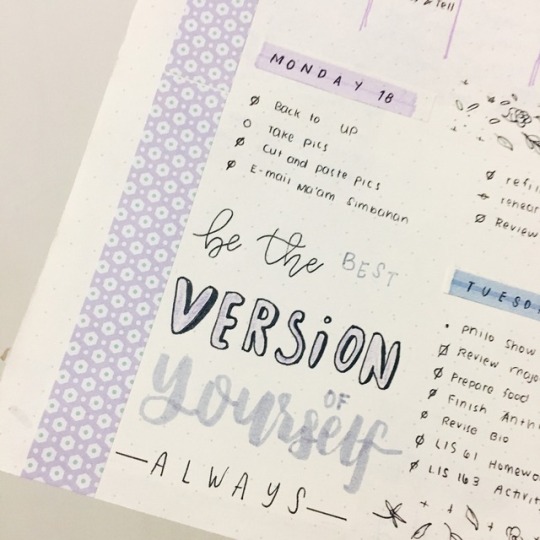 & Tell
MONDAY 18
Back to up
Take pics
Cut and paste pics
E-mail Ma'am Simbahan
be the BEST
VERSION
OF
yourself
—ALWAYS—
Review
Philo Show
Review
Prepare food
Finish
Revise Bio
LIS 61
LIS 163